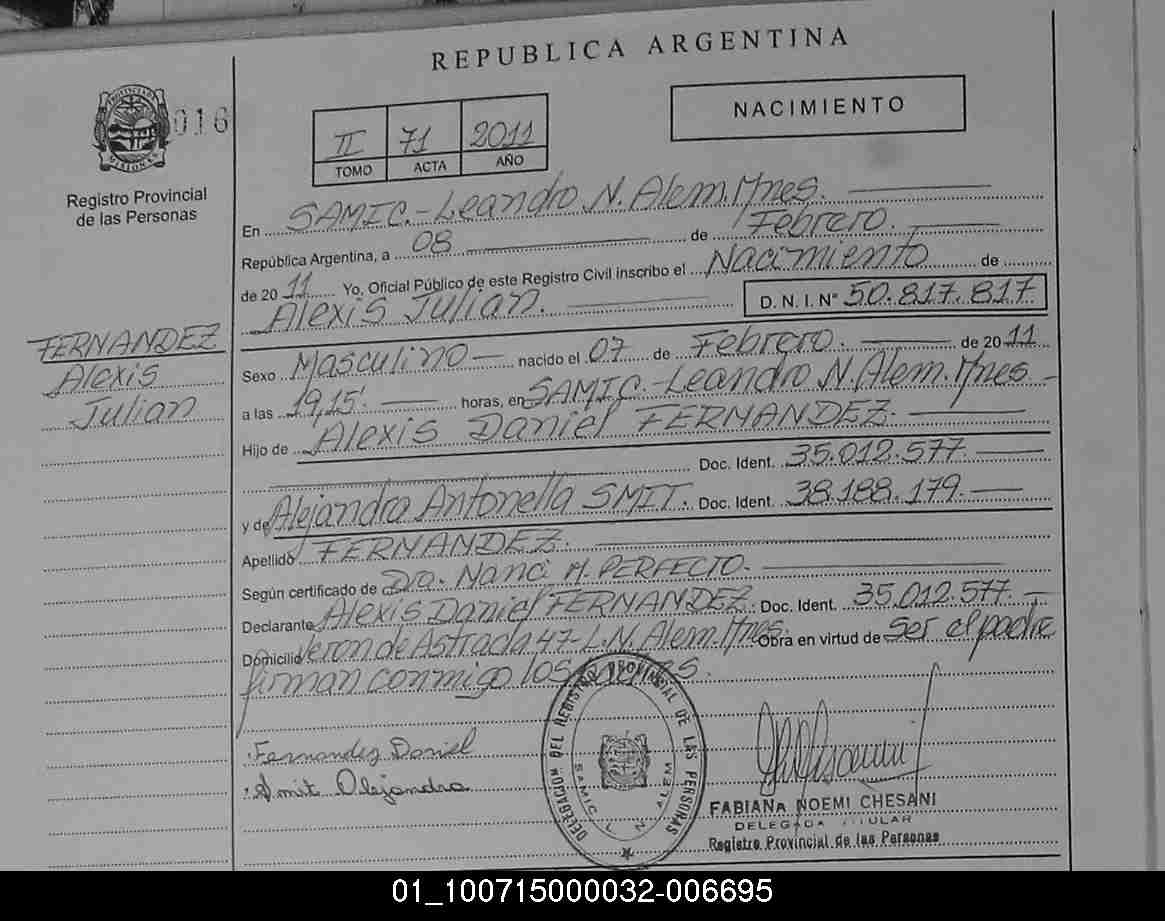 REPUBLICA ARGENTINA
016
NACIMIENTO
II 71 2011
TOMO ACTA AÑO
Registro Provincial
de las Personas
En SAMIC.-Leandro N. Alem. Mnes.
República Argentina, a 08 de Febrero.
de 2011 Yo, Oficial Público de este Registro Civil inscribo el Nacimiento de
Alexis Julian. D. N. I. N° 50.817.817
FERNANDEZ
Alexis
Julian
Sexo Masculino nacido el 07 de Febrero. de 2011
a las 19,15'. horas, en SAMIC.-Leandro N. Alem. Mnes
Hijo de Alexis Daniel FERNANDEZ.
Doc. Ident. 35.012.577.
y de Alejandra Antonella SMIT. Doc. Ident. 38.188.179.
Apellido FERNANDEZ.
Según certificado de Dra. Nanci M. PERFECTO.
Declarante Alexis Daniel FERNANDEZ. Doc. Ident. 35.012.577.
Domicilio Veron de Astrada 47-L.N. Alem. Mnes. Obra en virtud de ser el padre
firman conmigo los
Fernandez Daniel
Smit Alejandra
DELEGACION DEL REGISTRO PROVINCIAL DE LAS PERSONAS
SAMIC L N ALEM
FABIANA NOEMI CHESANI
DELEGADA TITULAR
Registro Provincial de las Personas
01_100715000032-006695